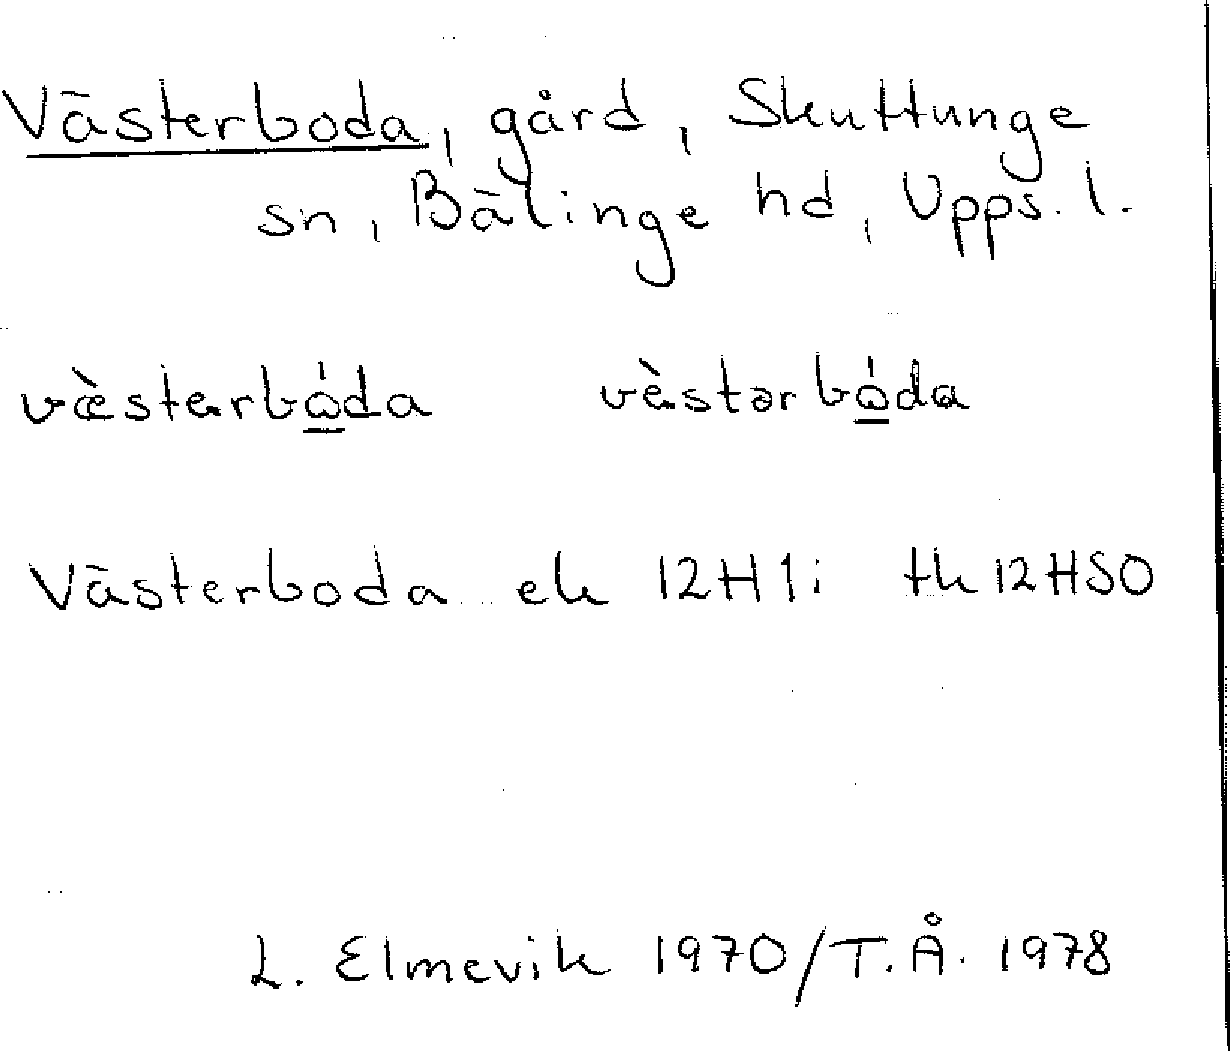 Västerboda, gård, Skuttunge
sn, Bälinge hd, Upps. l.
vὲstərbώ̱da vὲstərbώ̱da
Västerboda ek 12H1i tk 12HSO
L. Elmevik 1970/T.Å. 1978